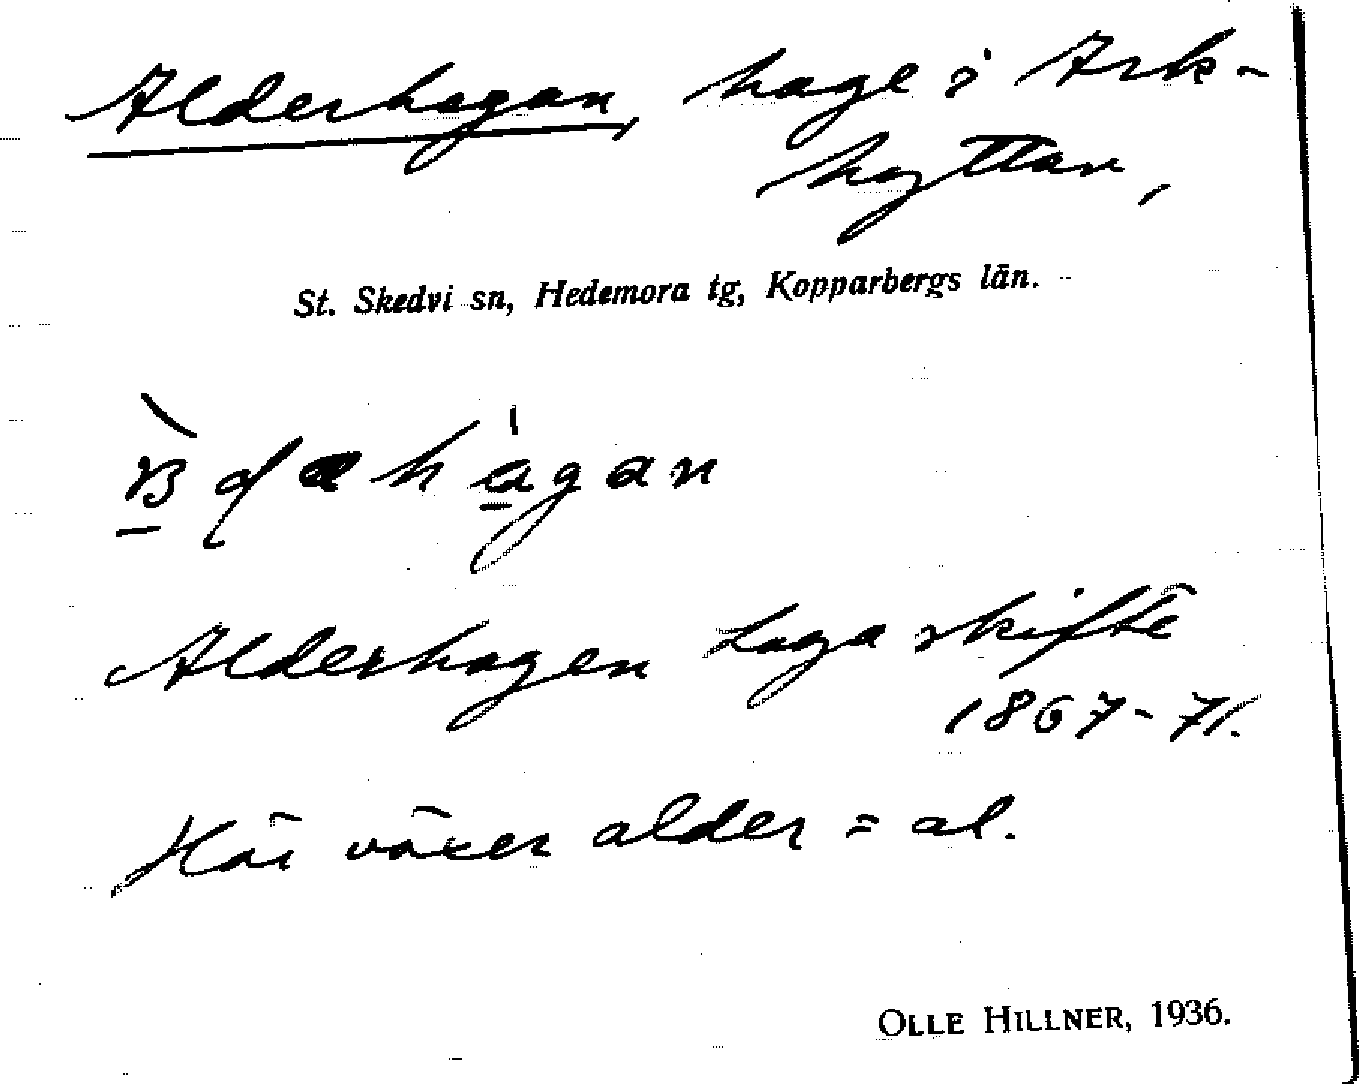 Alderhagan, hage i Ark-
hyttan,
St. Skedvi sn, Hedemora tg, Kopparbergs län.
Alderhagen Laga skifte
1867-71.
Här växer alder = al.
OLLE HILLNER, 1936.